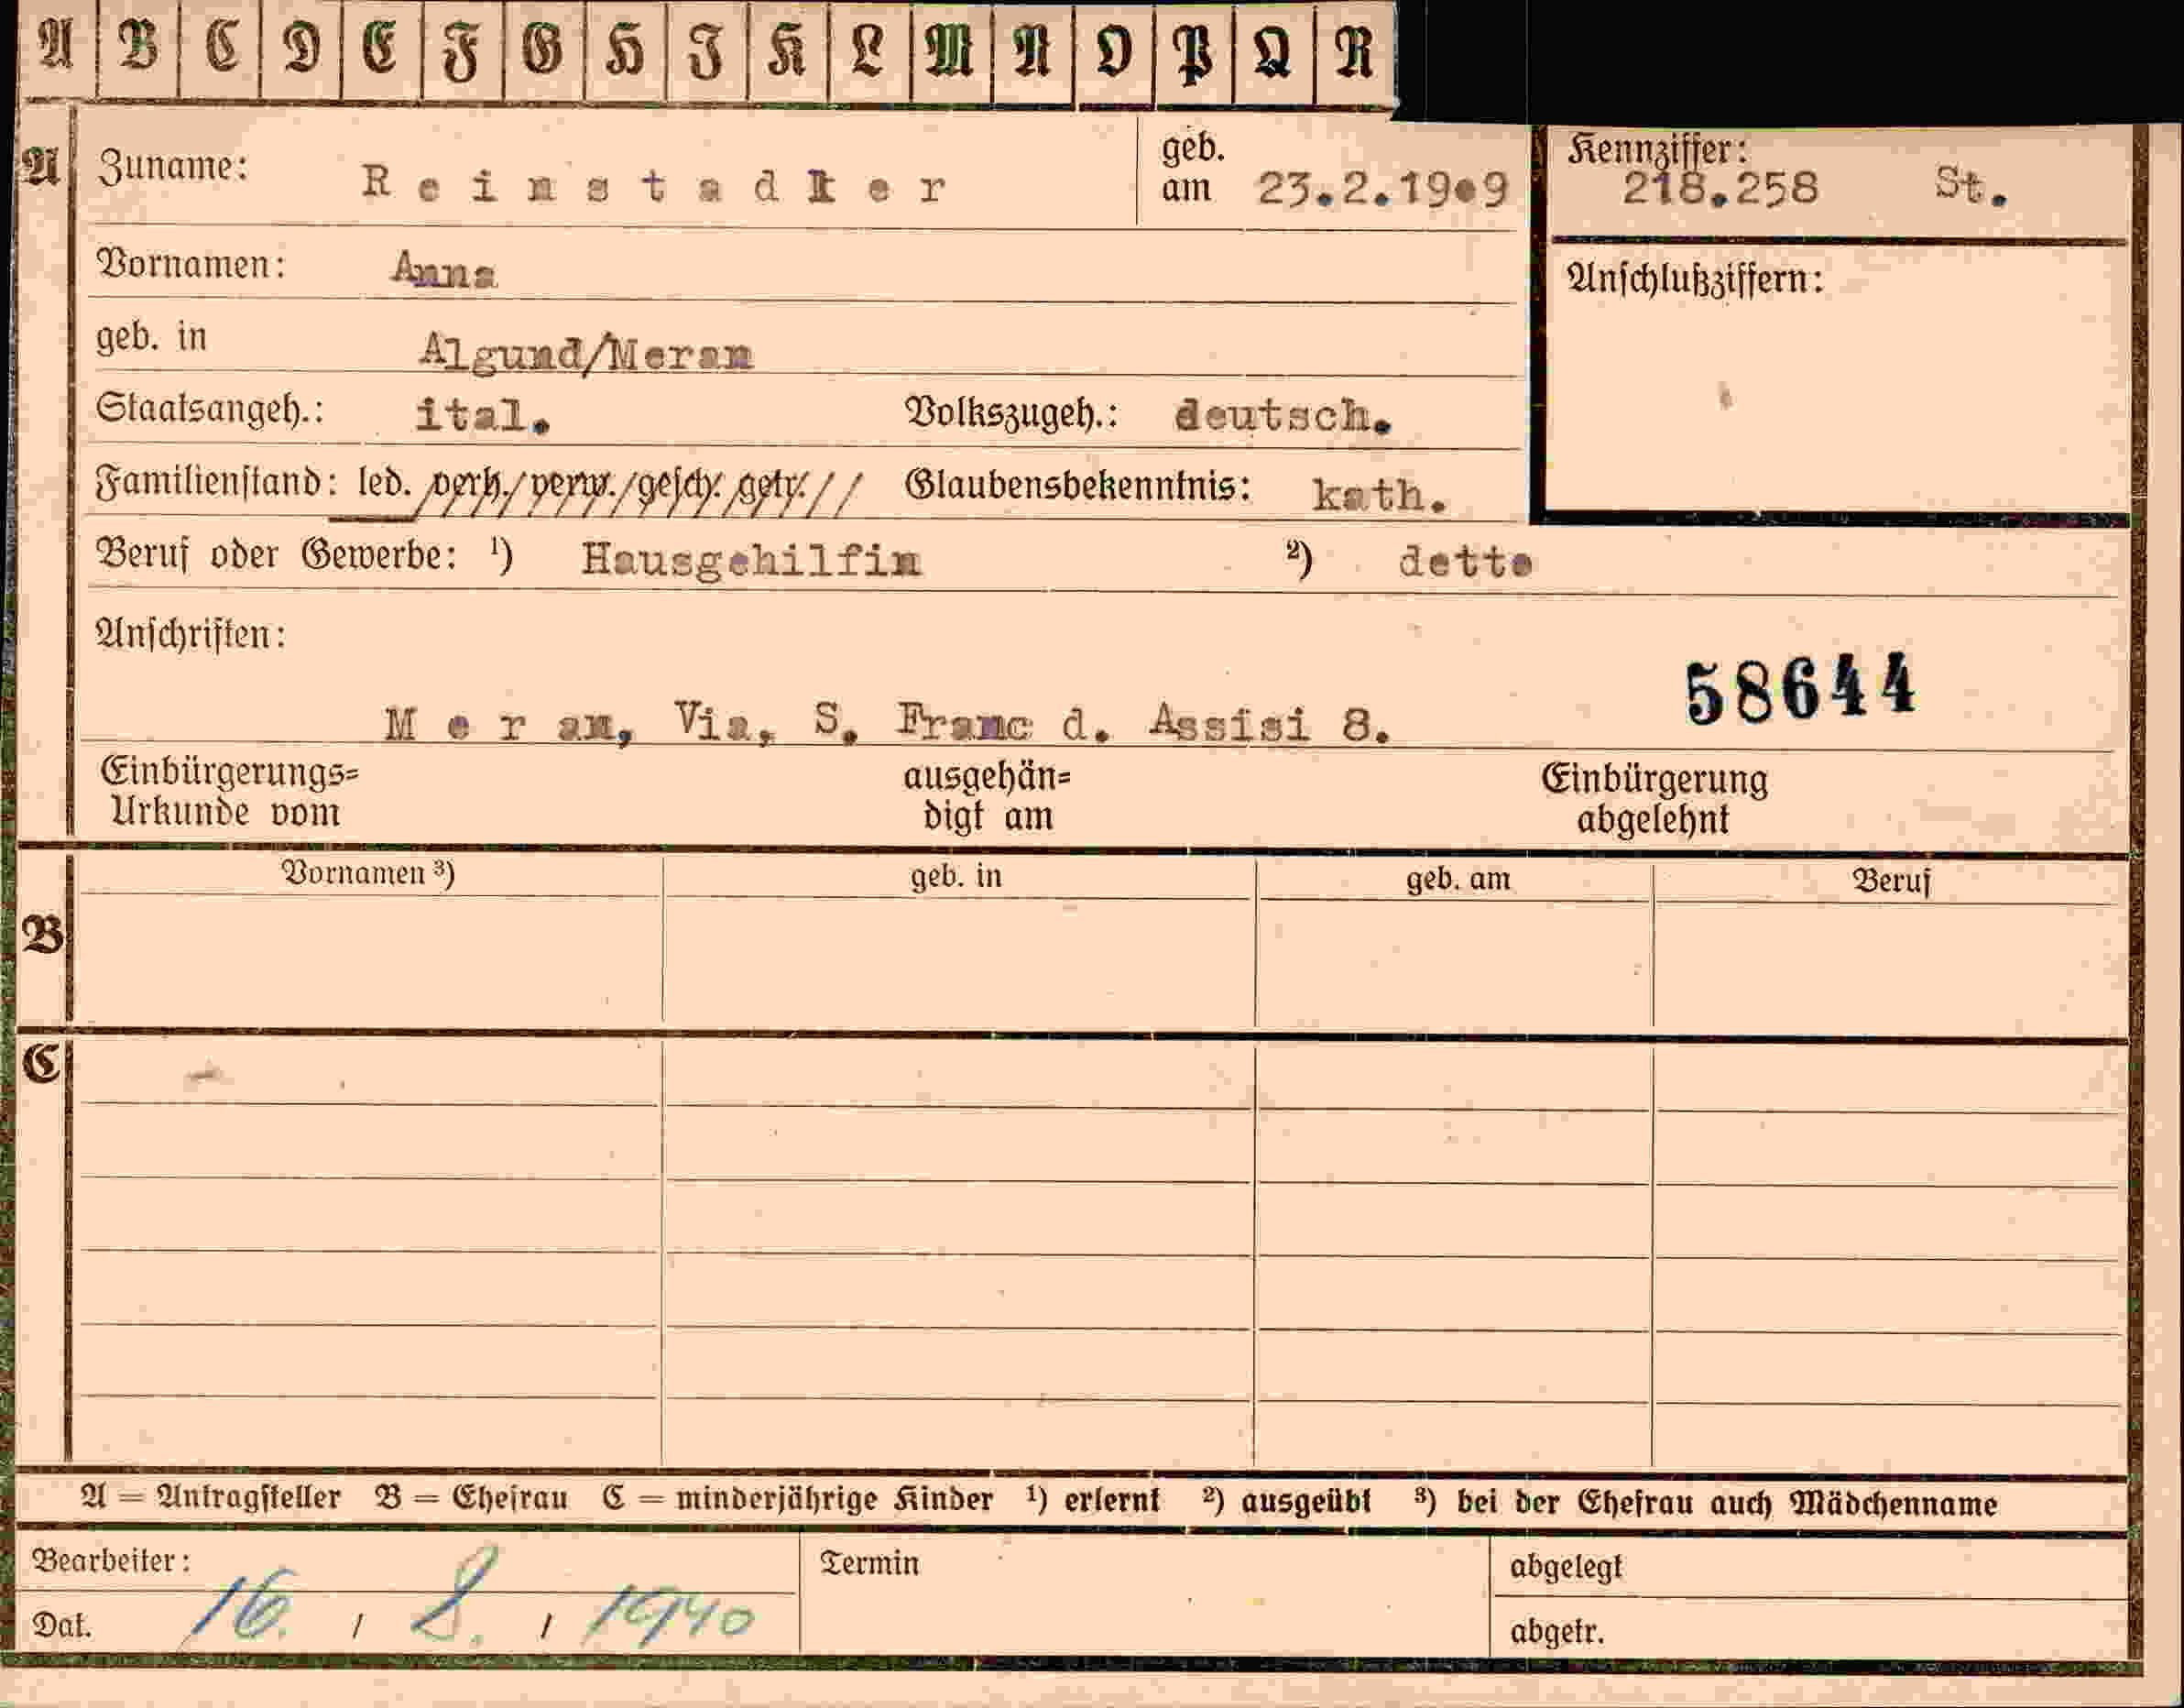 A B C D E F G H I K L M N O P Q R
A Zuname: Reinstadler geb. am 23.2.1909 Kennziffer: 218.258 St.
Vornamen: Anna Anschlußziffern:
geb. in Algund/Meran
Staatsangeh.: ital. Volkszugeh.: deutsch.
Familienstand: led. / verh. / verw. / gesch. getr. / / Glaubensbekenntnis: kath.
Beruf oder Gewerbe: ¹) Hausgehilfin ²) detto
Anschriften:
58644
M e r an, Via, S. Franc d. Assisi 8.
Einbürgerungs= ausgehän= Einbürgerung
Urkunde vom digt am abgelehnt
Vornamen ³) geb. in geb. am Beruf
B
C
A = Antragsteller B = Ehefrau C = minderjährige Kinder ¹) erlernt ²) ausgeübt ³) bei der Ehefrau auch Mädchenname
Bearbeiter: Termin abgelegt
Dat. 16. / 8. / 1940 abgetr.